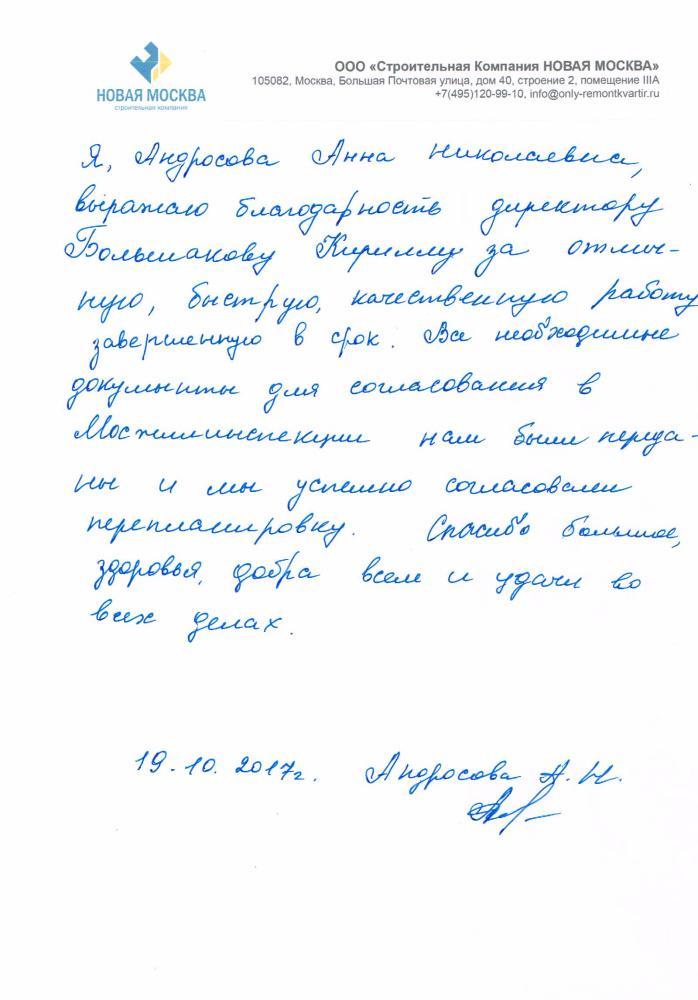 НОВАЯ МОСКВА
строительная компания
ООО «Строительная Компания НОВАЯ МОСКВА»
105082, Москва, Большая Почтовая улица, дом 40, строение 2, помещение IIIA
+7(495)120-99-10, info@only-remontkvartir.ru
Я, Андросова Анна Николаевна,
выражаю благодарность директору
Большакову Кириллу за отлич-
ную, быструю, качественную работу
завершенную в срок. Все необходимые
документы для согласования в
Мосжилинспекции нам были переда-
ны и мы успешно согласовали
перепланировку. Спасибо большое,
здоровья, добра всем и удачи во
всех делах.
19.10.2017г. Андросова А.Н.